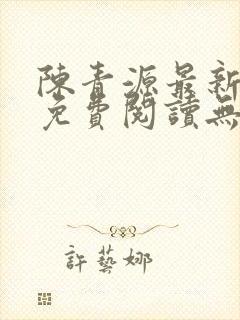 陳青源最新
免費閱讀無
許藝娜